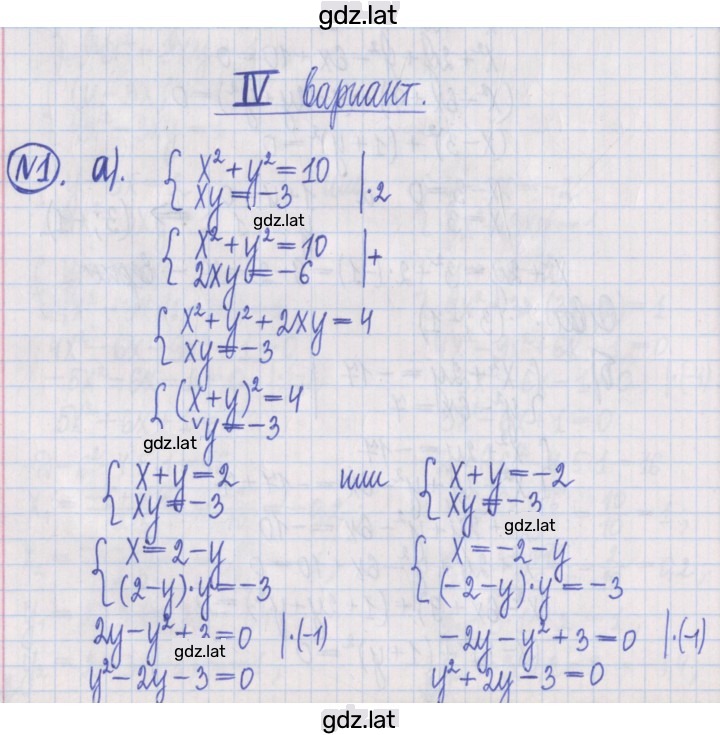 gdz.lat
IV вариант.
N1. а). { x² + y² = 10
xy = -3 | ·2
gdz.lat
{ x² + y² = 10
2xy = -6 | +
{ x² + y² + 2xy = 4
xy = -3
{ (x+y)² = 4
xy = -3
gdz.lat
{ x + y = 2 или { x + y = -2
xy = -3 xy = -3
gdz.lat
{ x = 2 - y { x = -2 - y
(2-y)·y = -3 (-2-y)·y = -3
2y - y² + 3 = 0 | ·(-1) -2y - y² + 3 = 0 | ·(-1)
gdz.lat
y² - 2y - 3 = 0 y² + 2y - 3 = 0
gdz.lat